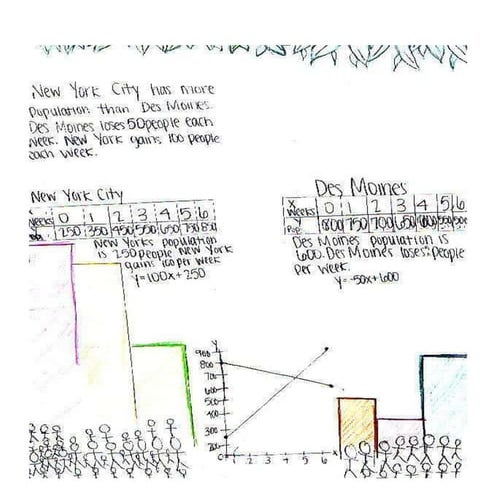 New York City has more
Population than Des Moines.
Des Moines loses 50 people each
week. New York gains 100 people
each week.
New York City
Weeks 0 1 2 3 4 5 6
250 350 450 550 650 750 850
New Yorks population
is 250 people New York
gains 100 per week
y=100x+250
Des Moines
X Weeks 0 1 2 3 4 5 6
Y Pop. 800 750 700 650 600 550 500
Des Moines population is
600. Des Moines loses people
Per week.
y=-50x+600
Y
900
800
700
600
500
400
300
200
0 1 2 3 4 5 6 x